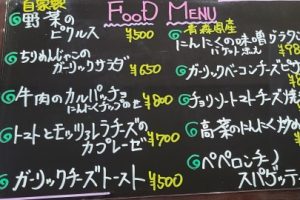 FOOD MENU
自家製
野菜の
ピクルス ¥500
ちりめんじゃこの
ガーリックサラダ ¥650
牛肉のカルパッチョ
にんにくチップのせ ¥800
トマトとモッツァレラチーズの
カプレーゼ ¥700
ガーリックチーズトースト ¥500
青森県産
にんにくの味噌グラタン
バゲット
ガーリックベーコンチーズピ
チョリソートマトチーズ焼
高菜のにんにく炒め
ペペロンチーノ
スパゲッティ